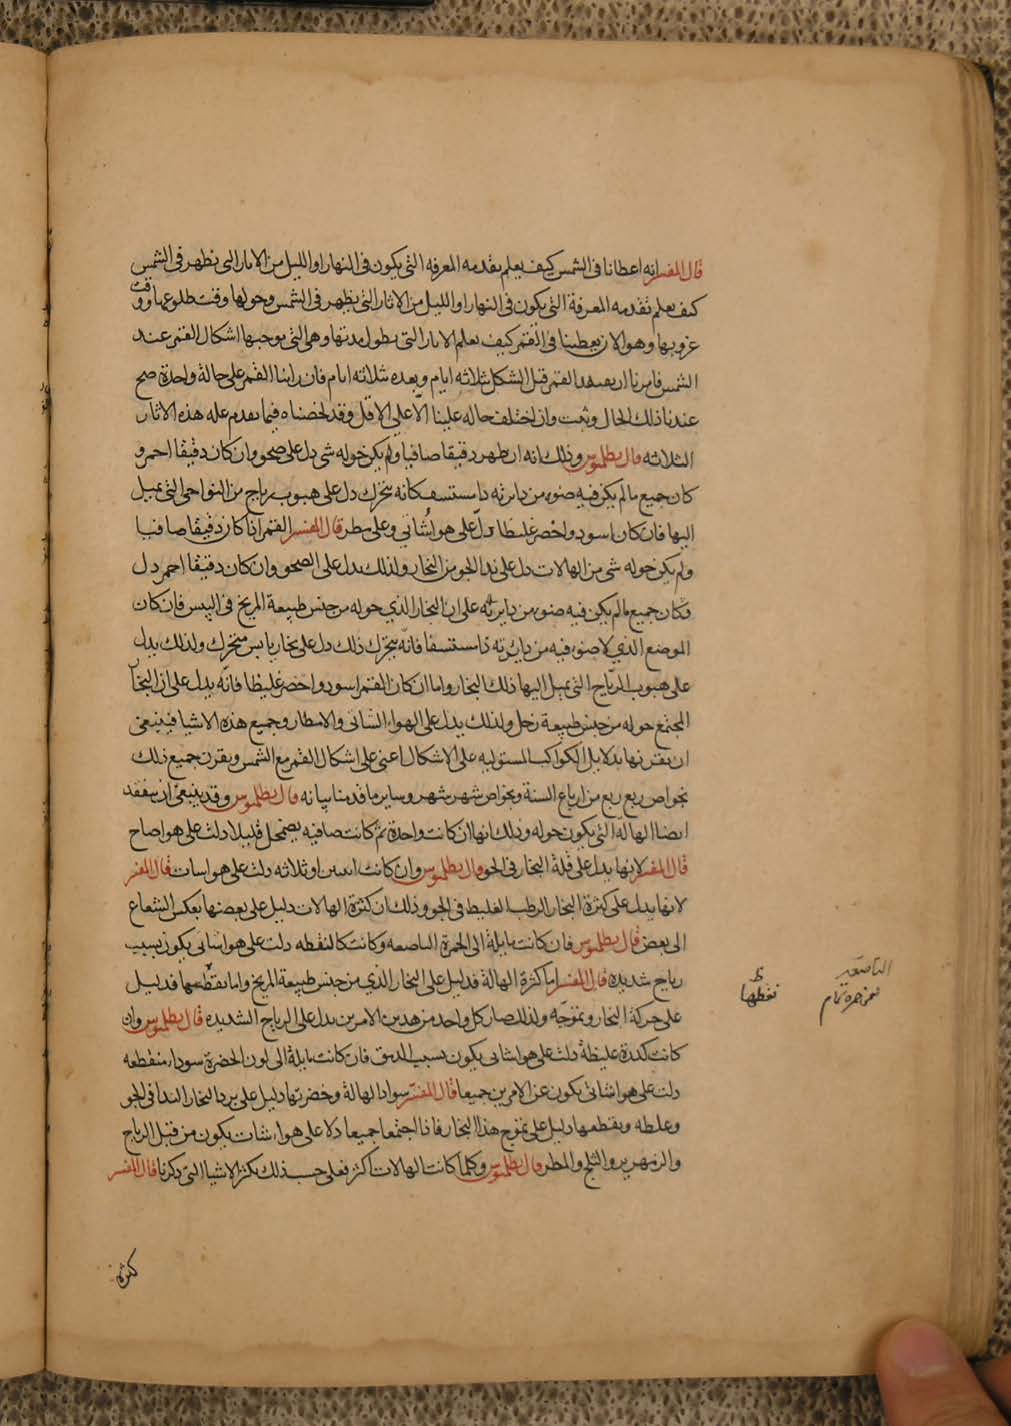 قال المفسر انه اعطانا في الشمس كيف يعلم بقدمه المعرفه التي يكون في النهار او الليل من الاثار التي تظهر في الشمس
كيف يعلم تقدمه المعرفة التي يكون في النهار او الليل من الاثار التي يظهر في الشمس وحولها وقت طلوعها ووقت
غروبها وهو الان يعطينا في القمر كيف يعلم الاثار التي يطول مدتها وهي التي يوجبها اشكال القمر عند
الشمس فامرنا ان يعتقد القمر قبل الشكل بثلاثه ايام وبعده ثلاثه ايام فان راينا القمر على حالة واحدة صح
عندنا ذلك الحال وثبت وان اختلف حاله علينا الا على الاقل وقد لخصناه فيما يقدم عله هذه الاثار
الثلاثه قال بطلميوس وذلك انه ان ظهر دقيقا صافيا ولم يكن حوله شي دل على صحو وان كان دقيقا احمر و
كان جميع ما لم يكن فيه ضوء من دايرته كانه يتحرك دل على هبوب رياح من النواحي التي يميل
اليها فان كان اسود واخضر غليظا دل على هوا شاتي وعلى مطر قال المفسر القمر اذا كان دقيقا صافيا
ولم يكن حوله شي من الهالات دل على ندا الجو من البخار ولذلك يدل على الصحو وان كان دقيقا احمر دل
وكان جميع ما لم يكن فيه ضوء من دايرته على ان البخار الذي حوله من جنس طبيعة المريخ في اليبس فان كان
الموضع الذي لا ضوء فيه من دايرته مستسفا فانه يتحرك ذلك دل على بخار يابس متحرك ولذلك يدل
على هبوب الرياح التي يميل اليها ذلك البخار واما ان كان القمر اسود واخضر غليظا فانه يدل على ان البخار
المجتمع حوله من جنس طبيعة زحل ولذلك يدل على الهواء الشاتي والامطار وجميع هذه الاشيا فينبغي
ان يقرنها بدلايل الكواكب المستوليه على الاشكال اعني على اشكال القمر مع الشمس ويقرن جميع ذلك
بخواص ربع ربع من ارباع السنة وبخواص شهر شهر وساير ما قدمنا بيانه قال بطلميوس وقد ينبغي ان يتفقد
ايضا الهاله التي يكون حوله وذلك انها ان كانت واحدة ثم كانت صافيه يضمحل قليلا دلت على هوا صاح
قال المفسر لانها يدل على قلة البخار في الجو قال بطلميوس وان كانت اثنين او ثلاثه دلت على هوا شات قال المفسر
لانها يدل على كثرة البخار الرطب الغليظ في الجو وذلك ان كثرة الهالات دليل على بعضها بعكس الشعاع
الى بعض قال بطلميوس فان كانت مايلة الى الحمرة الناصعه وكانت كالنقطه دلت على هوا شاتي يكون بسبب
رياح شديدة قال المفسر اما كثرة الهالة فدليل على البخار الذي من جنس طبيعة المريخ واما تقطعها فدليل
على حركة البخار وتموجه ولذلك صار كل واحد من هذين الامرين يدل على الرياح الشديده قال بطلميوس وان
كانت كدرة غليظة دلت على هوا شاتي يكون بسبب الدبق فان كانت مايلة الى لون الخضرة سوداء منقطعه
دلت على هوا شاتي يكون عن الامرين جميعا قال المفسر سواد الهالة وخضرتها دليل على برد البخار الندا في الجو
وغلظه وتقطعها دليل على تموج هذا البخار فاذا اجتمعا جميعا دلا على هواء شات يكون من قبل الرياح
والزمهرير والثلج والمطر قال بطلميوس وكلما كانت الهالات اكثر فعلى حسب ذلك يكثر الاشيا التي ذكرنا قال المفسر
كثرة
ظ
تقطها
الناصعة